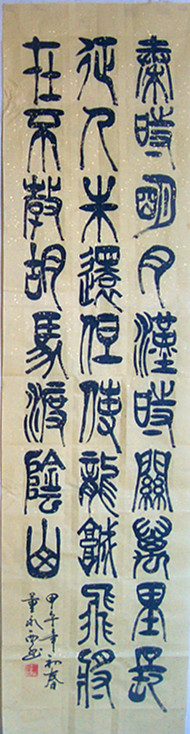 秦時明月漢時關萬里長
征人未還但使龍城飛將
在不教胡馬渡陰山
甲午年初春